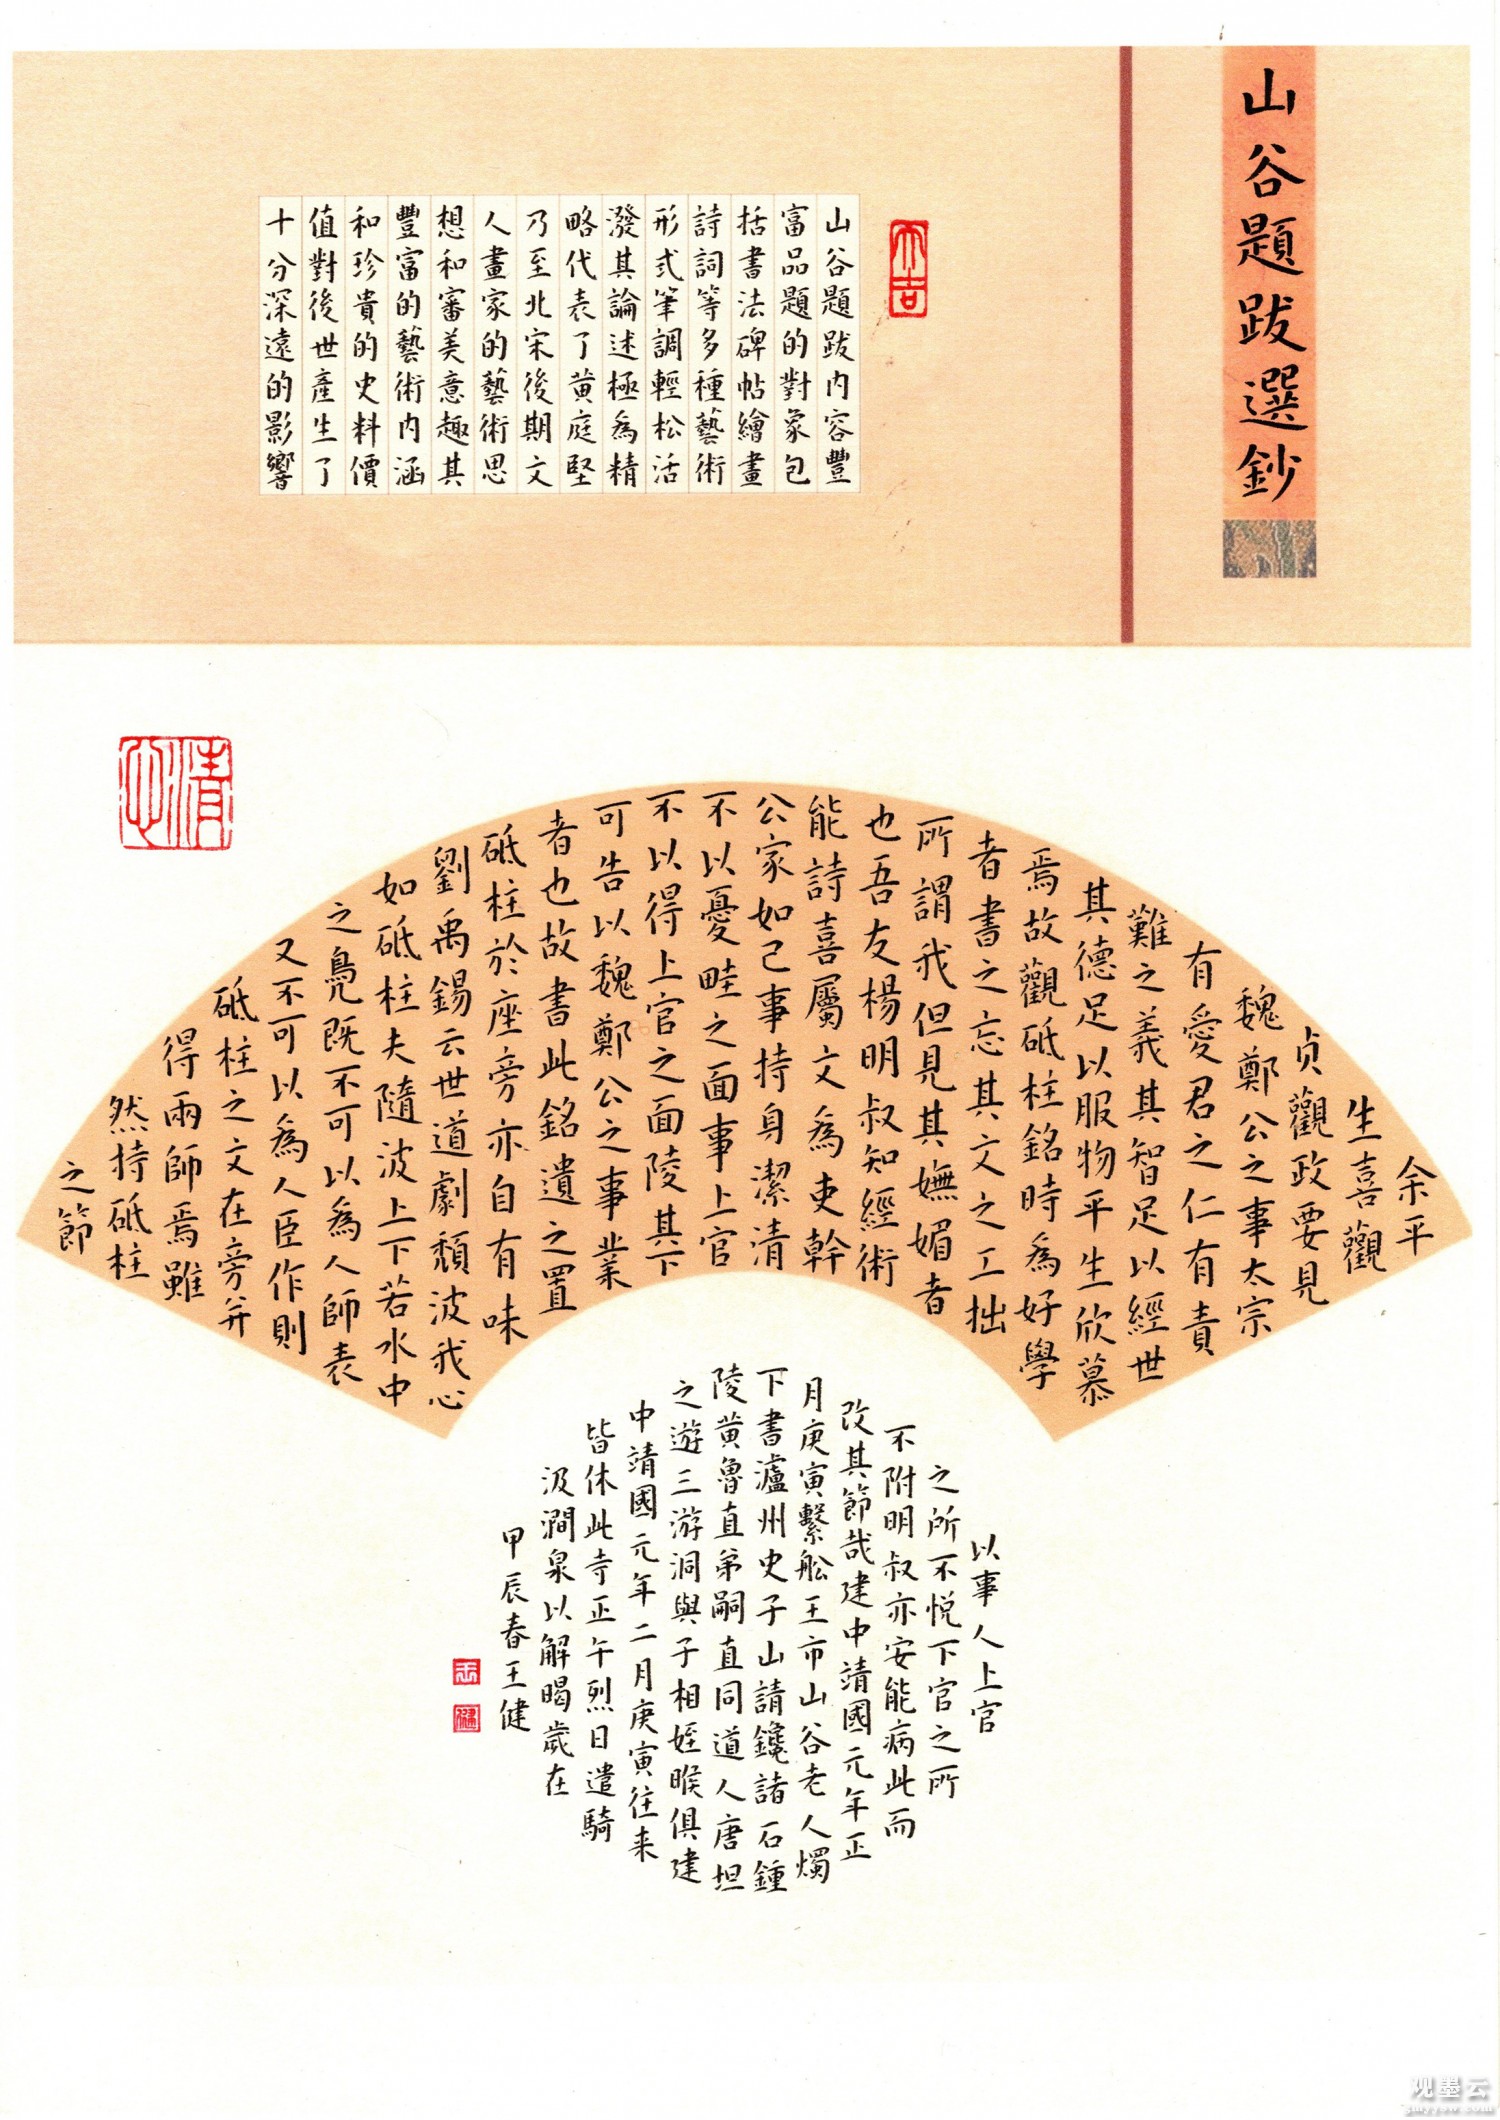 山谷題跋選鈔
大吉
山谷題跋內容豐
富品題的對象包
括書法碑帖繪畫
詩詞等多種藝術
形式筆調輕松活
潑其論述極為精
略代表了黄庭堅
乃至北宋後期文
人畫家的藝術思
想和審美意趣其
豐富的藝術內涵
和珍貴的史料價
值對後世產生了
十分深遠的影響
余平
生喜觀
貞觀政要見
魏鄭公之事太宗
有愛君之仁有責
難之義其智足以經世
其德足以服物平生欣慕
焉故觀砥柱銘時為好學
者書之忘其文之工拙
所謂我但見其嫵媚者
也吾友楊明叔知經術
能詩喜屬文為吏幹
公家如己事持身潔清
不以憂畦之面事上官
不以得上官之面陵其下
可告以魏鄭公之事業
者也故書此銘遺之置
砥柱於座旁亦自有味
劉禹錫云世道劇頹波我心
如砥柱夫隨波上下若水中
之鳧既不可以為人師表
又不可以為人臣作則
砥柱之文在旁并
得兩師焉雖
然持砥柱
之節
以事人上官
之所不悦下官之所
不附明叔亦安能病此而
改其節哉建中靖國元年正
月庚寅繫舩王市山谷老人燭
下書瀘州史子山請鑱諸石鍾
陵黄魯直弟嗣直同道人唐坦
之遊三游洞與子相姪㬋俱建
中靖國元年二月庚寅往来
皆休此寺正午烈日遣騎
汲澗泉以解暍歲在
甲辰春王健
王
健
观墨云